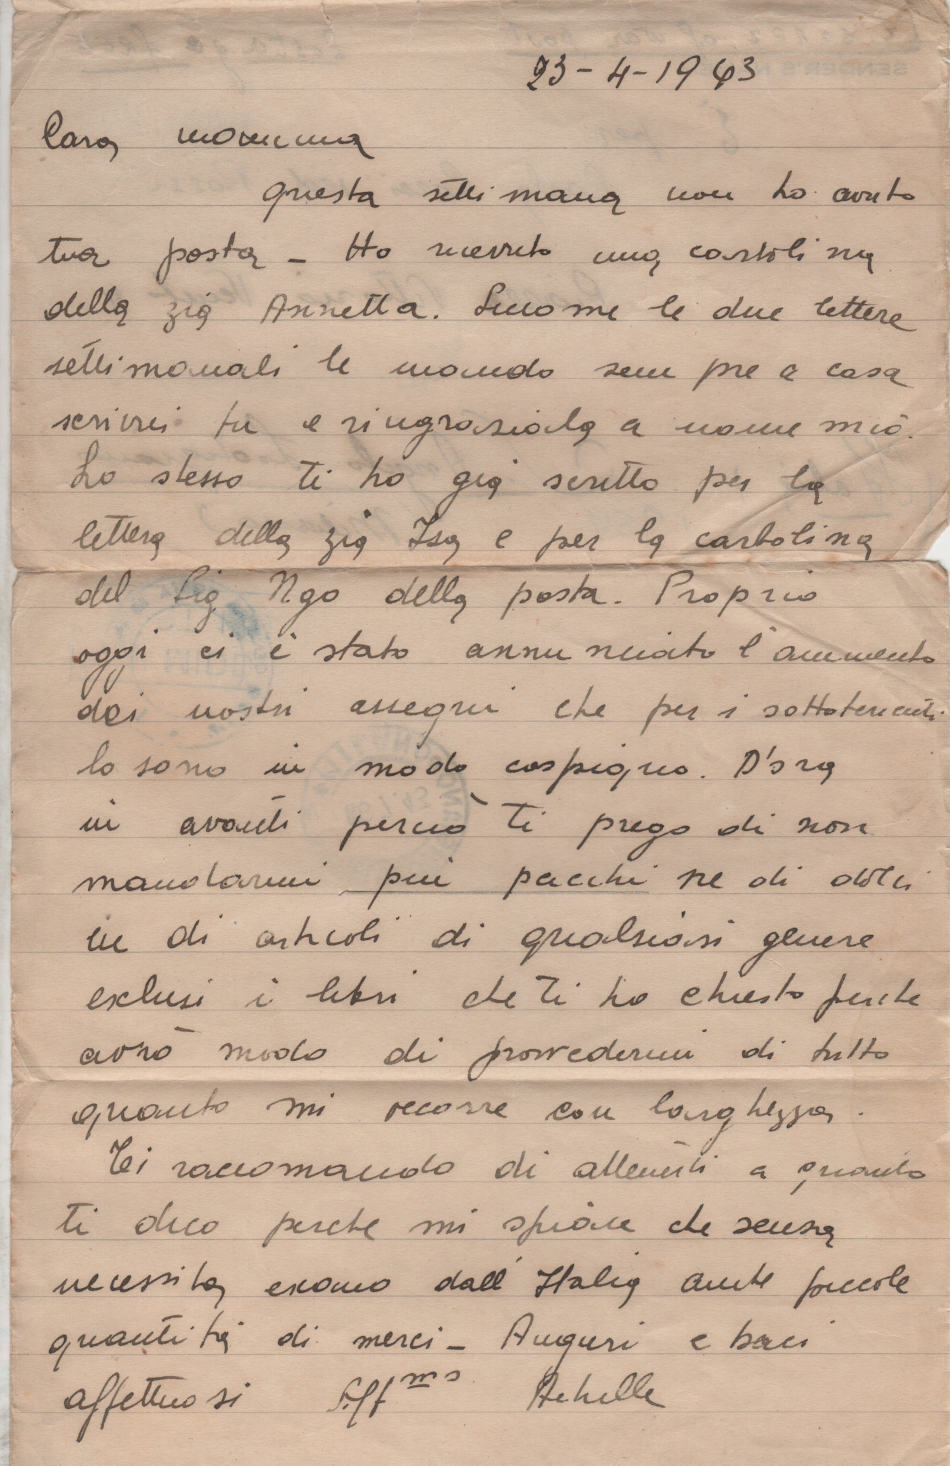 23-4-1943
Cara mamma
questa settimana non ho avuto
tua posta - Ho ricevuto una cartolina
della zia Annetta. Siccome le due lettere
settimanali le mando sempre a casa
scrivici tu e ringraziala a nome mio.
Lo stesso ti ho già scritto per la
lettera della zia Isa e per la cartolina
del Sig Ngo della posta. Proprio
oggi ci è stato annunciato l'aumento
dei nostri assegni che per i sottotenenti
lo sono in modo cospiquo. D'ora
in avanti perciò ti prego di non
mandarmi più pacchi ne di dolci
ne di articoli di qualsiasi genere
exclusi i libri che ti ho chiesto perche
avrò modo di provvedermi di tutto
quanto mi occorre con larghezza.
Ti raccomando di attenerti a quanto
ti dico perche mi spiace che senza
necessità escano dall'Italia anche piccole
quantità di merci - Auguri e baci
affettuosi Aff mo Achille